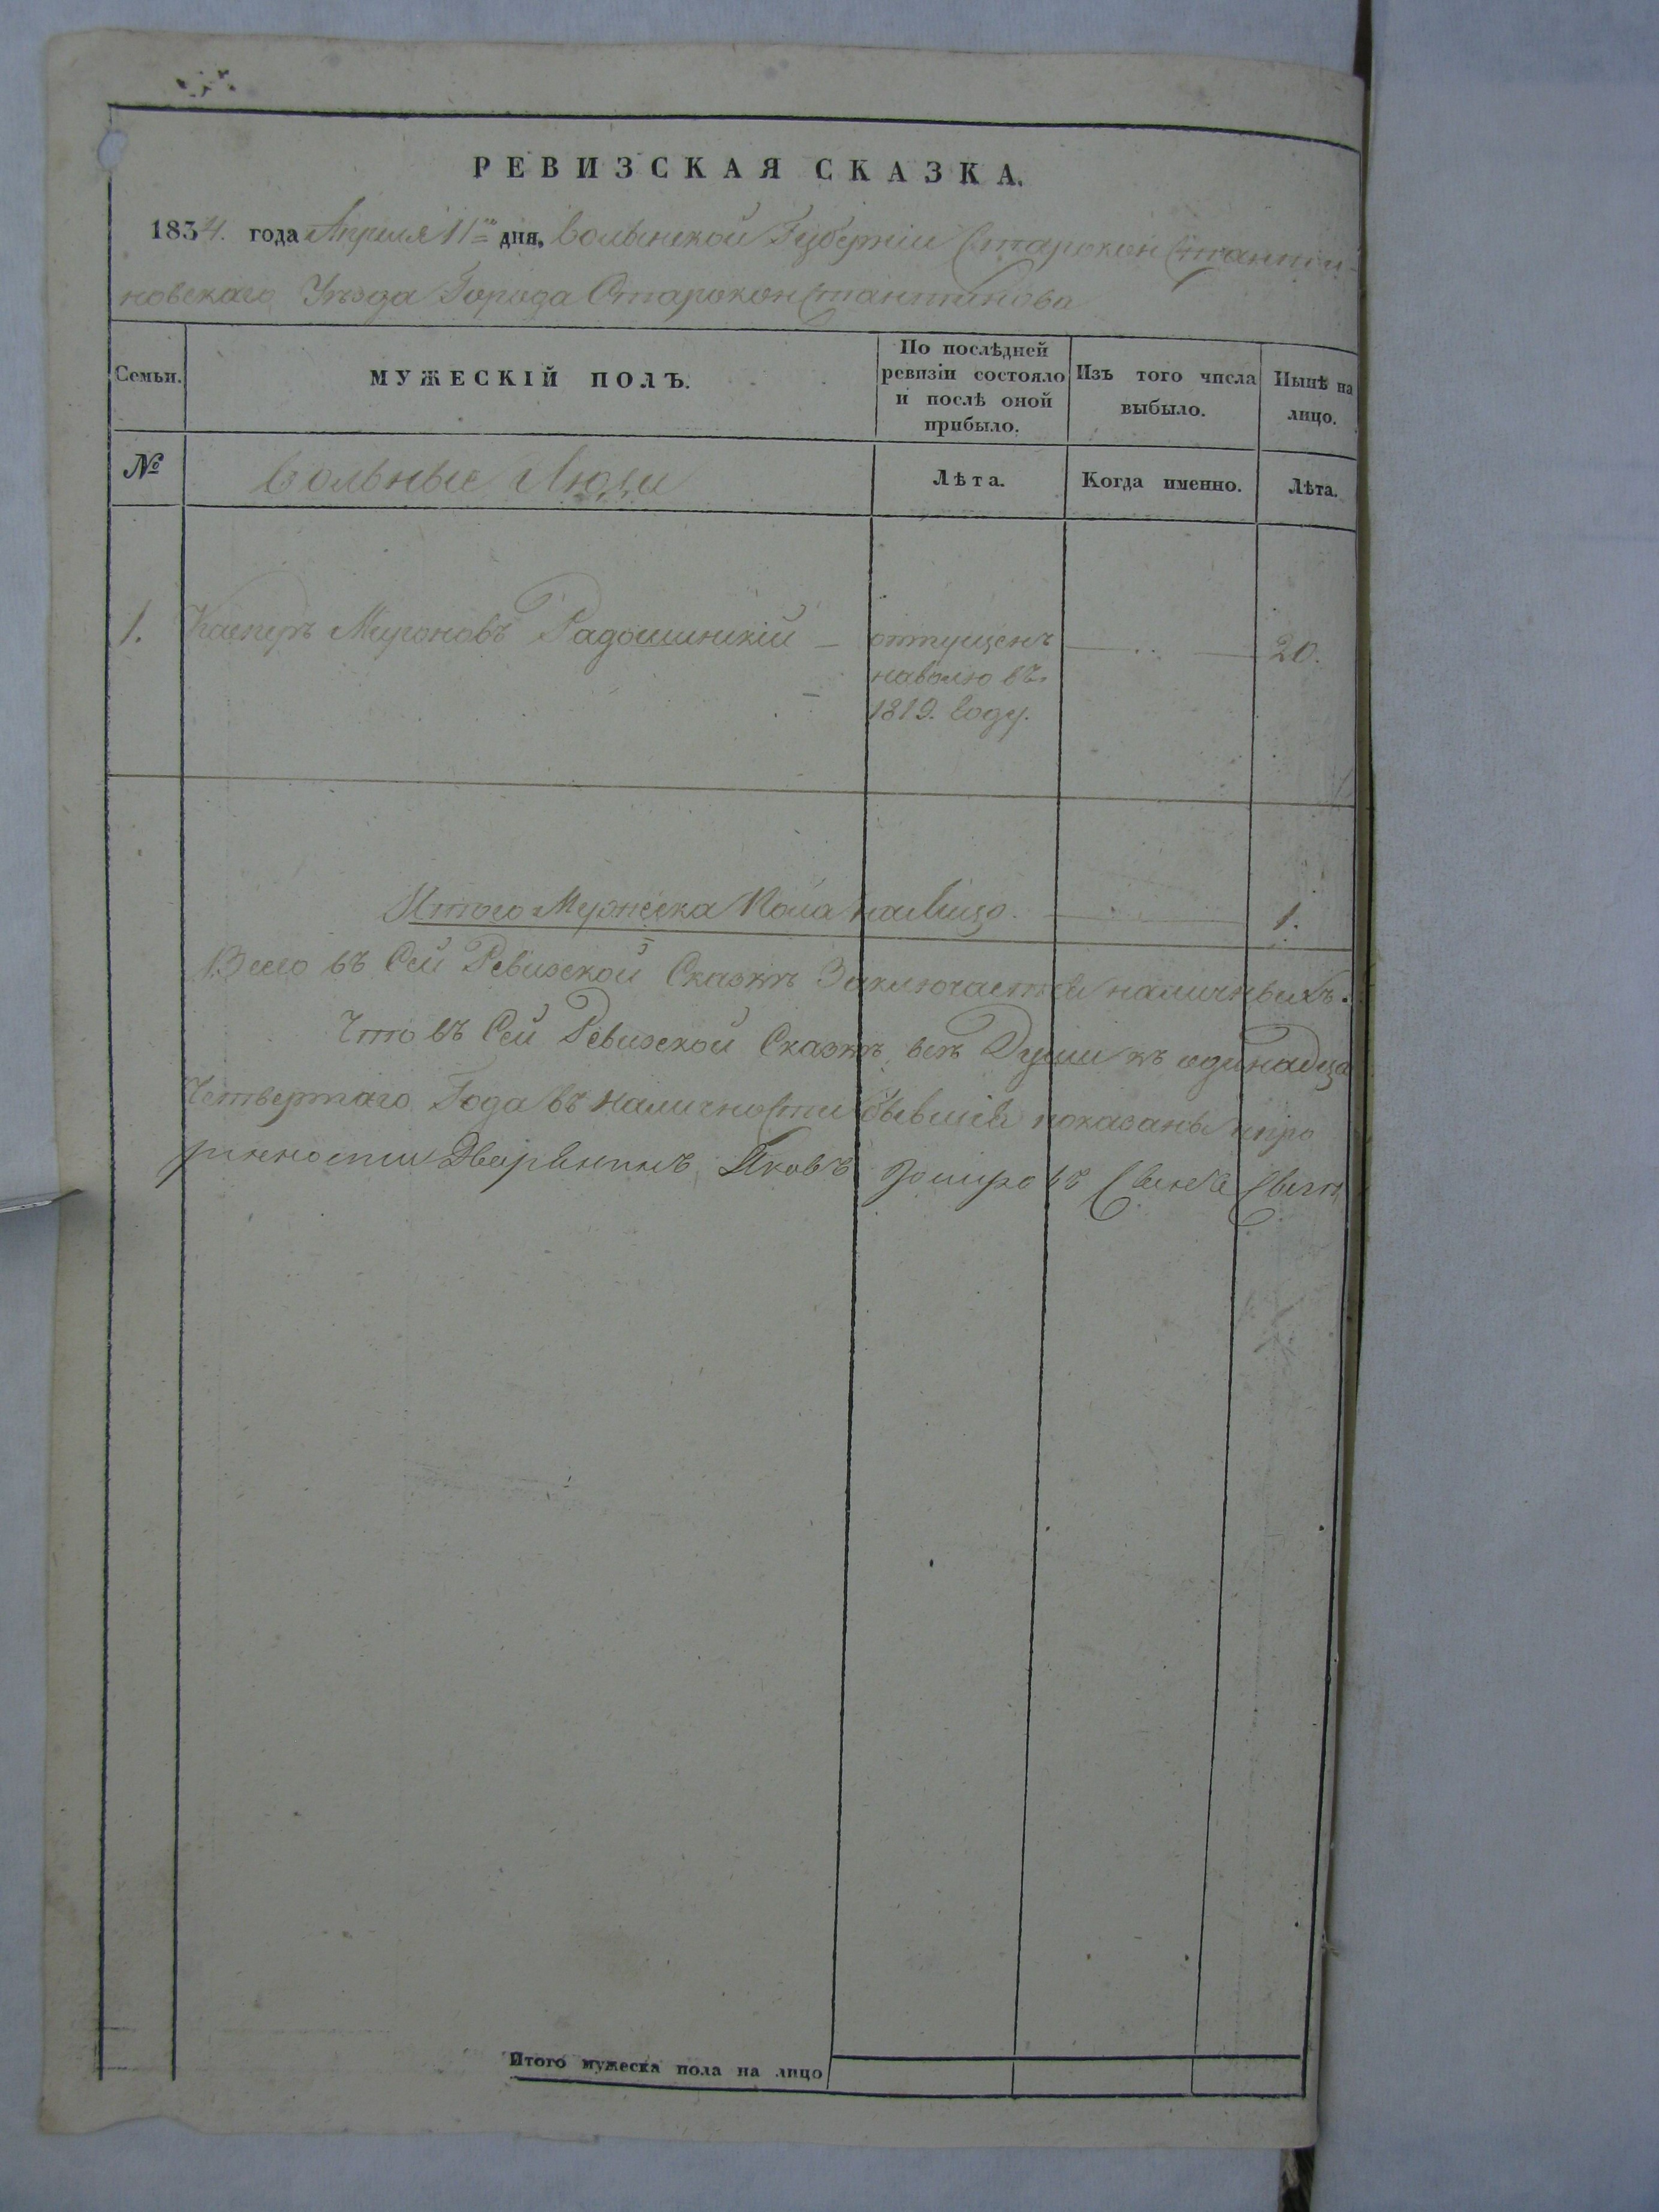 РЕВИЗСКАЯ СКАЗКА.
1834. года Апреля 11го дня, Волынской Губернiи Старокон Стантти-
новскаго Уѣзда Города СтароконСтантинова
Семьи.
МУЖЕСКIЙ ПОЛЪ.
По послѣдней
ревизiи состояло
и послѣ оной
прибыло.
Изъ того числа
выбыло.
Нынѣ на
лицо.
№
Вольные Люди
Лѣта.
Когда именно.
Лѣта.
1. Касперъ Мироновъ Радошинскiй — отпущенъ 20.
наволю въ
1819. Году.
Итого Мужеска Пола налицо. 1.
Всего въ Сей Ревизской Сказкѣ Заключается наличныхъ.
Что въ Сей Ревизской Сказкѣ всѣ Души къ одинадца
Четвертаго Года въ наличности бывшiя показаны и про
Дворянинъ Яковъ
Итого мужеска пола на лицо